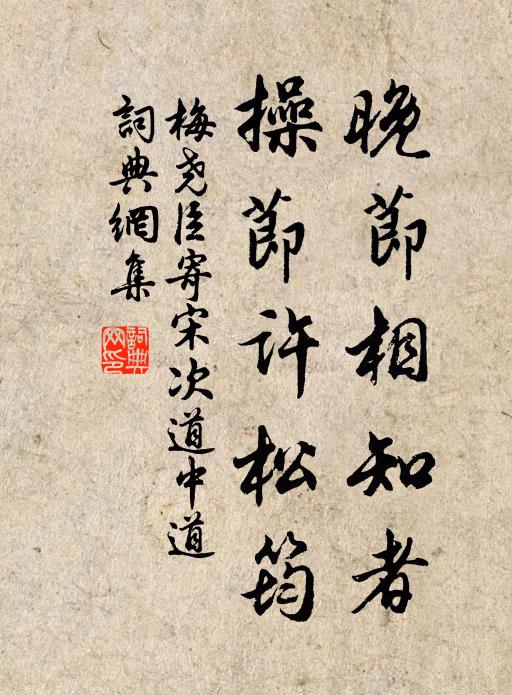 晚節相知者
操節許松筠
梅尧臣寄宋次道中道
詞典網集
詞典网印